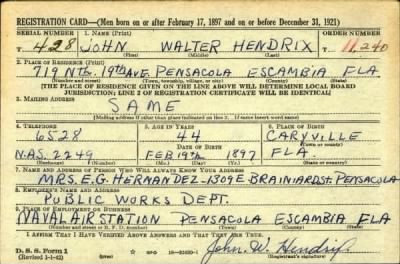 REGISTRATION CARD—(Men born on or after February 17, 1897 and on or before December 31, 1921)
SERIAL NUMBER 1. NAME (Print) ORDER NUMBER
T 428 JOHN WALTER HENDRIX T 11,240
(First) (Middle) (Last)
2. PLACE OF RESIDENCE (Print)
719 Nth. 19th AVE PENSACOLA ESCAMBIA FLA
(Number and street) (Town, township, village, or city) (County) (State)
[THE PLACE OF RESIDENCE GIVEN ON THE LINE ABOVE WILL DETERMINE LOCAL BOARD
JURISDICTION; LINE 2 OF REGISTRATION CERTIFICATE WILL BE IDENTICAL]
3. MAILING ADDRESS
SAME
[Mailing address if other than place indicated on line 2. If same insert word same]
4. TELEPHONE 5. AGE IN YEARS 6. PLACE OF BIRTH
6528 44 CARYVILLE
DATE OF BIRTH (Town or county)
N.A.S. 2249 FEB 19th 1897 FLA.
(Exchange) (Number) (Mo.) (Day) (Yr.) (State or country)
7. NAME AND ADDRESS OF PERSON WHO WILL ALWAYS KNOW YOUR ADDRESS
MRS. E.G. HERNANDEZ-1309 E. BRAINIARD St. PENSACOLA
8. EMPLOYER'S NAME AND ADDRESS
PUBLIC WORKS DEPT.
9. PLACE OF EMPLOYMENT OR BUSINESS
NAVAL AIR STATION PENSACOLA ESCAMBIA FLA
(Number and street or R. F. D. number) (Town) (County) (State)
I AFFIRM THAT I HAVE VERIFIED ABOVE ANSWERS AND THAT THEY ARE TRUE.
D. S. S. Form 1
(Revised 1-1-42) GPO John W. Hendrix